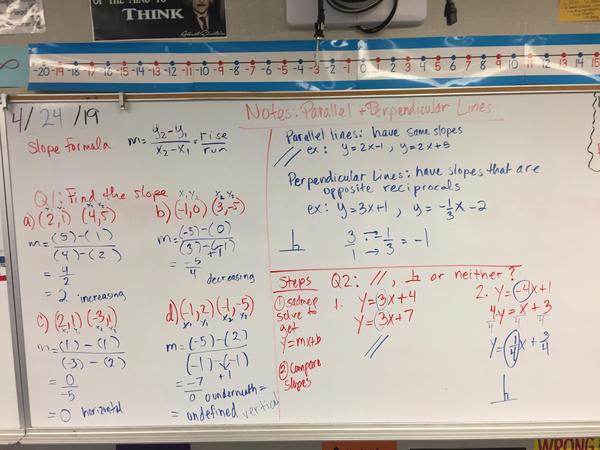 THINK
-20-19-18-17-16-15-14-13-12-11-10-9-8-7-6-5-4-3-2-1 0 1 2 3 4 5 6 7 8 9 10 11 12 13 14 15
4/24/19
Notes: Parallel + Perpendicular Lines
Slope Formula m = y2-y1 / x2-x1 = rise / run
Q1: Find the slope
x1 y1 x2 y2
a) (2,1) (4,5)
m = (5) - (1) / (4) - (2)
= 4/2
= 2 increasing
x1 y1 x2 y2
b) (-1,0) (3,-5)
m = (-5) - (0) / (3) - (-1)
+1
= -5/4
decreasing
c) (2,1) (-3,1)
x1 y1 x2 y2
m = (1) - (1) / (-3) - (2)
= 0/-5
= 0 horizontal
d) (-1,2) (-1,-5)
x1 y1 x2 y2
m = (-5) - (2) / (-1) - (-1)
+1
= -7/0 0 underneath =
= undefined vertical
Parallel lines: have same slopes
// ex: y=2x-1, y=2x+5
Perpendicular Lines: have slopes that are
opposite reciprocals
ex: y=3x+1, y=-1/3x-2
3/1 · -1/3 = -1
Steps
① 
solve to
get
y=mx+b
② compare
slopes
Q2: //, ⊥ or neither?
1. y=3x+4
y=3x+7
//
2. y=-4x+1
4·y=x+3
4 4 4
y=1/4x+3/4
⊥
WRONG